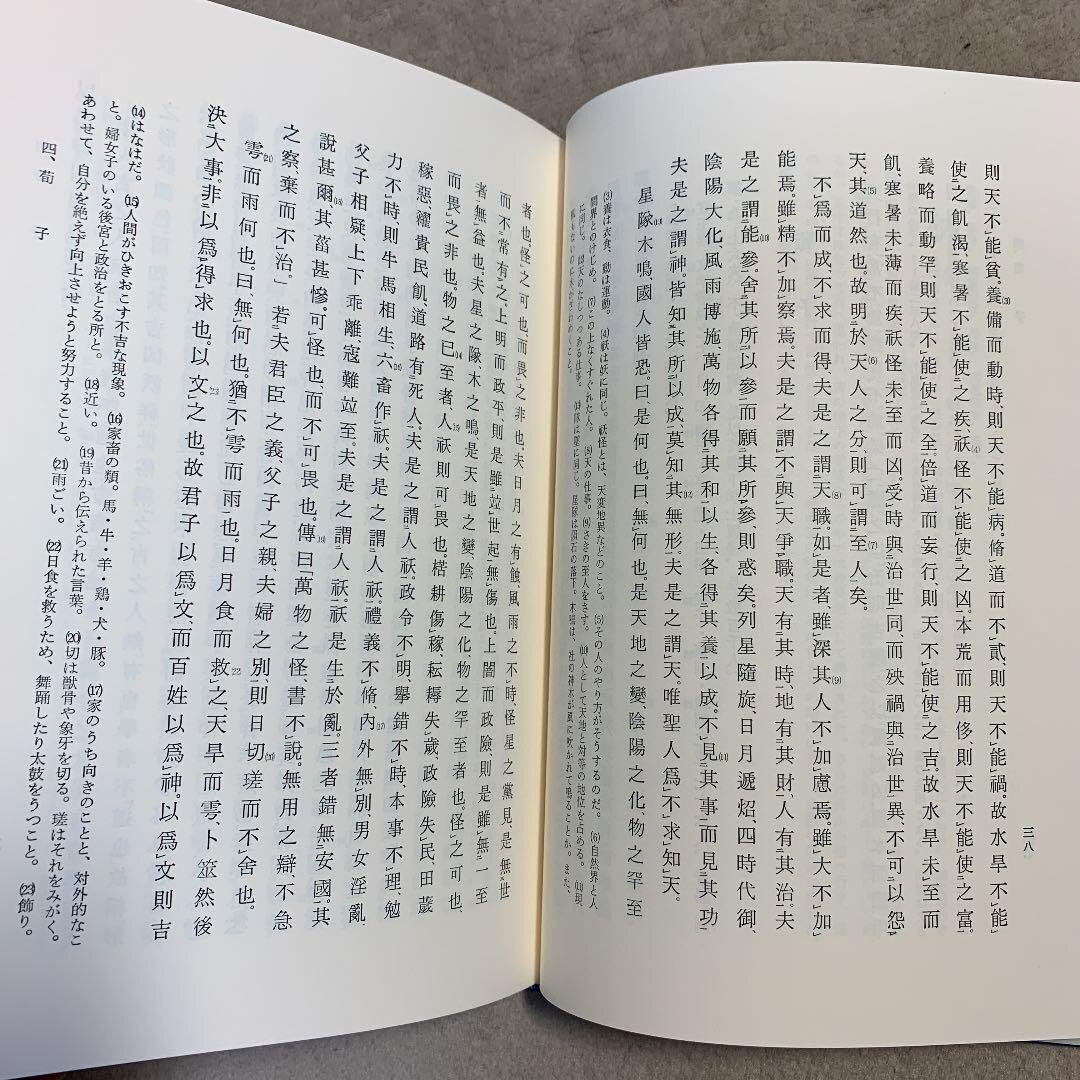 三八
則天不能貧。養(3)備而動時、則天不能病。脩道而不貳、則天不能禍。故水旱不能
使之飢渴、寒暑不能使之疾、祅(4)怪不能使之凶。本荒而用侈、則天不能使之富。
養略而動罕、則天不能使之全。倍道而妄行、則天不能使之吉。故水旱未至而
飢、寒暑未薄而疾、祅怪未至而凶。受時與治世同、而殃禍與治世異、不可以怨
天、其(5)道然也。故明於天(6)人之分、則可謂至(7)人矣。
不爲而成、不求而得、夫是之謂天(8)職。如是者、雖深、其(9)人不加慮焉。雖大、不加
能焉。雖精、不加察焉。夫是之謂不與天爭職。天有其時、地有其財、人有其治。夫
是之謂能(10)參。舍其所以參、而願其所參、則惑矣。列星隨旋、日月遞炤、四時代御、
陰陽大化、風雨博施、萬物各得其和以生、各得其養以成。不見(11)其事而見其功、
夫是之謂神。皆知其所以成、莫知其(12)無形。夫是之謂天。唯聖人爲不求知天。
星隊(13)木鳴、國人皆恐。曰、是何也。曰、無何也。是天地之變、陰陽之化、物之罕至
(3)養は衣食、動は運動。 (4)祅は妖に同じ。祅怪とは、天変地異などのこと。 (5)その人のやり方がそうするのだ。 (6)自然界と人
間界とのけじめ。 (7)この上なくすぐれた人。 (8)天の仕事。 (9)さきの至人をさす。 (10)人として天地と対等の地位を占める。 (11)現
に同じ。 (12)天のなしつつある仕事。 (13)隊は墜に同じ。星隊は隕石の落下。木鳴は、社の神木が風に吹かれて鳴ることか。また、
者也。怪之可也、而畏之非也。夫日月之有蝕、風雨之不時、怪星之黨見、是無世
而不常有之。上明而政平、則是雖竝世起、無傷也。上闇而政險、則是雖無一至
者、無益也。夫星之隊、木之鳴、是天地之變、陰陽之化、物之罕至者也。怪之可也、
而畏之非也。物之已(14)至者、人(15)祅則可畏也。楛耕傷稼、耘耨失歲、政險失民、田薉
稼惡、糴貴民飢、道路有死人、夫是之謂人祅。政令不明、舉錯不時、本事不理、勉
力不時、則牛馬相生、六(16)畜作祅。夫是之謂人祅。禮義不脩、內(17)外無別、男女淫亂、
父子相疑、上下乖離、寇難竝至。夫是之謂人祅。祅是生於亂。三者錯、無安國。其
說甚爾(18)、其菑甚慘。可怪也、而不可畏也。傳(19)曰、「萬物之怪、書不說。無用之辯、不急
之察、棄而不治。」若夫君臣之義、父子之親、夫婦之別、則日切(20)瑳而不舍也。
雩(21)而雨何也。曰、無何也。猶不雩而雨也。日月食而救(22)之、天旱而雩、卜筮然後
決大事、非以爲得求也。以文(23)之也。故君子以爲文、而百姓以爲神。以爲文則吉
(14)はなはだ。 (15)人間がひきおこす不吉な現象。 (16)家畜の類。馬・牛・羊・鶏・犬・豚。 (17)家のうち向きのことと、対外的なこ
と。婦女子のいる後宮と政治をとる所と。 (18)近い。 (19)昔から伝えられた言葉。 (20)切は獣骨や象牙を切る。瑳はそれをみがく。
あわせて、自分を絶えず向上させようと努力すること。 (21)雨ごい。 (22)日食を救うため、舞踊したり太鼓をうつこと。 (23)飾り。
四、荀 子